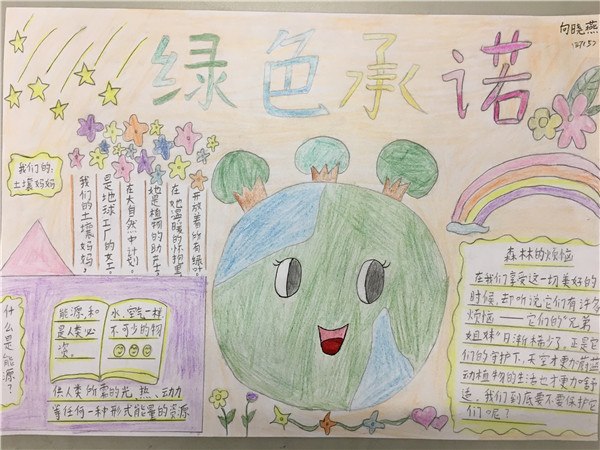 绿色承诺
向晓燕
我们的:
土壤妈妈
我们的土壤妈妈,
是地球工厂的女工。
在大自然中计划。
她是植物的助手
在她温暖的怀抱里
开放着所有绿叶
什么是能源?
能源,和
是人类必
资。
水、空气一样
不可少的物
供人类所需的光、热、动力
等任何一种形式能量的资源
森林的烦恼
在我们享受这一切美好的
时候,却听说它们有许多
烦恼——它们的“兄弟
姐妹”日渐稀少了,正是它
们的守护下,天空才更加蔚蓝
动植物的生活也才更加舒
适。我们到底要不要保护它
们呢?